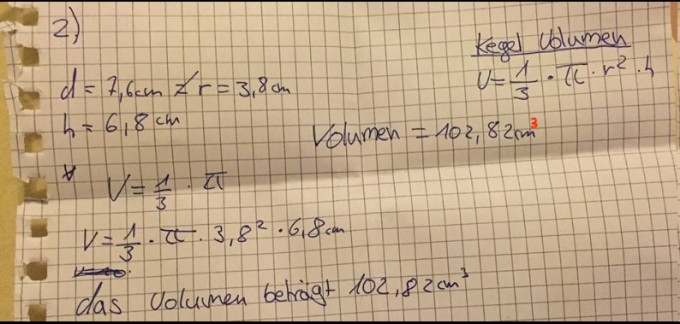 2)
Kegel Volumen
V = 1/3 · π · r² · h
d = 7,6cm ≠ r = 3,8cm
h = 6,8 cm
Volumen = 102,82cm³
V = 1/3 · π
V = 1/3 · π · 3,8² · 6,8cm
das Volumen beträgt 102,82cm³